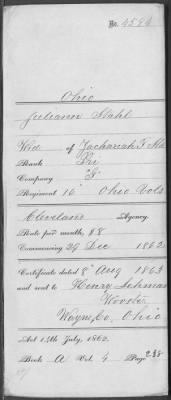 No. 4594
Ohio
Juliann Stahl
Wid of Zachariah T. Sta
Rank Pri
Company "G"
Regiment 16" Ohio Vols
Cleveland Agency.
Rate per month, $8
Commencing 29 Dec 1862
Certificate dated 8" Aug 1863
and sent to Henry Lehman
Wooster
Wayne Co. Ohio
Act 14th July, 1862.
Book A Vol. 4 Page 238